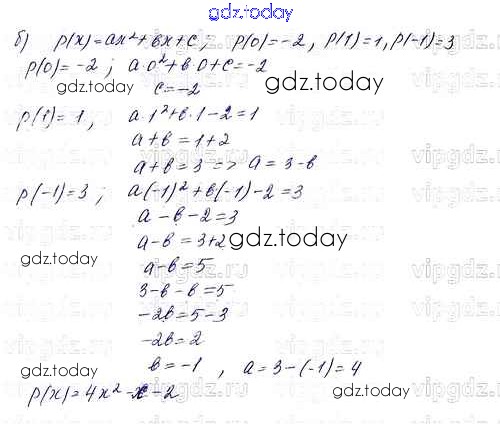 gdz.today
б) p(x)=ax²+bx+c; p(0)=-2, p(1)=1, p(-1)=3
p(0)=-2; a·0²+b·0+c=-2
gdz.today c=-2 gdz.today
p(1)=1, a·1²+b·1-2=1
a+b=1+2
a+b=3 => a=3-b
vipgdz.ru
p(-1)=3; a(-1)²+b(-1)-2=3
a-b-2=3
gdz.today a-b=3+2 gdz.today
a-b=5
vipgdz.ru
3-b-b=5
-2b=5-3
-2b=2
gdz.today b=-1, a=3-(-1)=4
p(x)=4x²-x-2 gdz.today